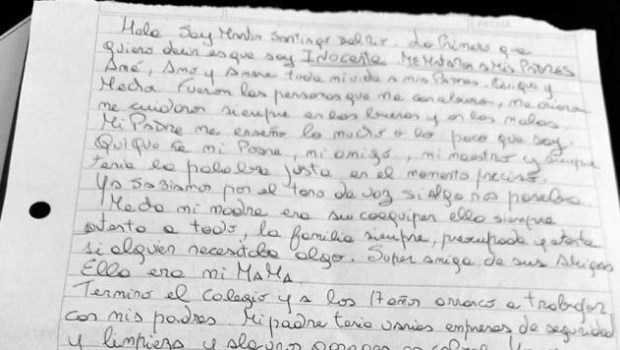 Hola Soy Martin Santiago Del Rio. Lo Primero que
quiero decir es que soy INOCENTE. NO MATE A MIS PADRES
Amé, Amo y Amare toda mi vida a mis Padres. Quique y
Mecha fueron las personas que me
me cuidaron siempre en las buenas y en las malas.
Mi Padre me enseño lo mucho o lo poco que soy.
Quique fue mi Padre, mi amigo, mi maestro y siempre
tenia la palabra justa en el momento preciso.
Ya sabiamos por el tono de voz si algo nos pasaba.
Mecha mi madre era su coequiper ella siempre
atenta a todo, la familia siempre, preocupada y atenta
si alguien necesitaba algo. Super amiga de sus Amigas
Ella era mi MAMA.
Termino el colegio y a los 17 años arranco a trabajar
con mis padres Mi padre tenia varias empresas de seguridad
y limpieza y